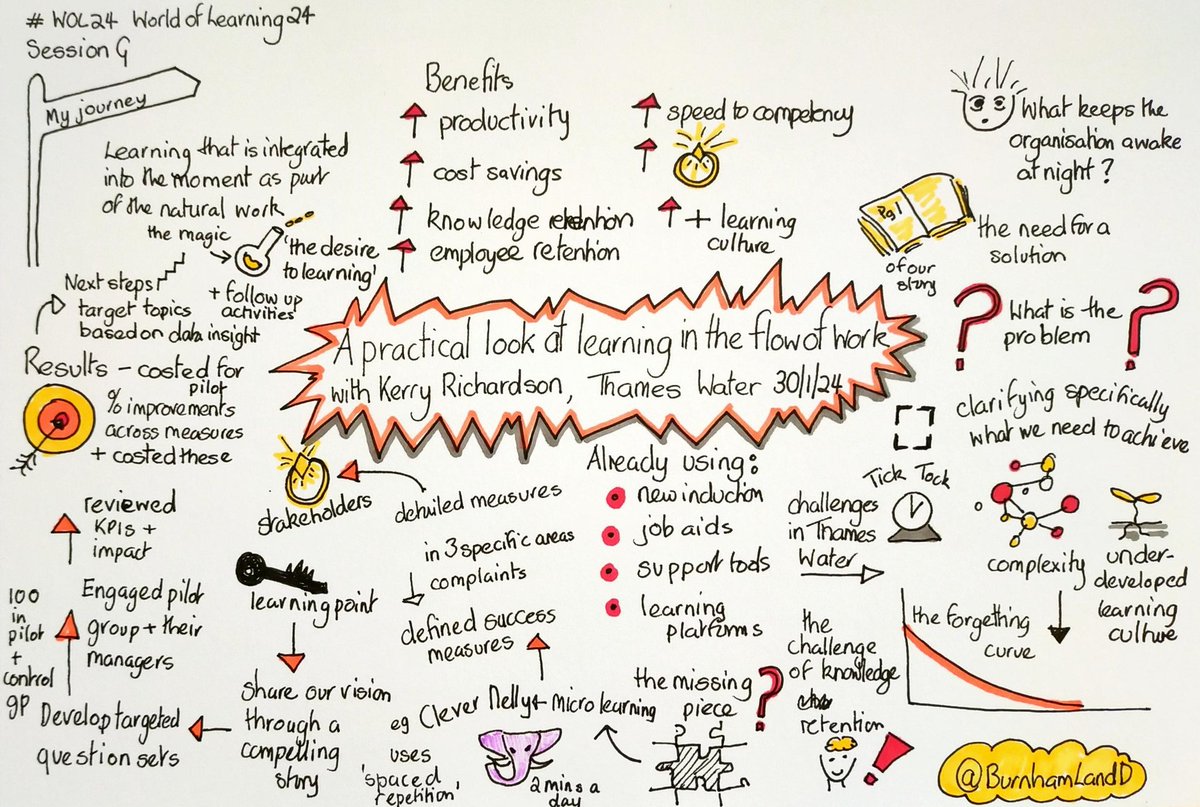 # WOL24 World of Learning 24
Session G
My journey
Learning that is integrated
into the moment as part
of the natural work
the magic
'the desire
to learning'
+ follow up
activities
Next steps
target topics
based on data insight
Results - costed for
pilot
% improvements
across measures
+ costed these
reviewed
KPIs +
impact
100
in
pilot
+
control
gp
Engaged pilot
group + their
managers
Develop targeted
question sets
Benefits
productivity
cost savings
knowledge retention
employee retention
speed to competency
+ learning
culture
What keeps the
organisation awake
at night?
Pg 1
of our
story
the need for a
solution
? What is the ?
problem
A practical look at learning in the flow of work
with Kerry Richardson, Thames Water 30/1/24
clarifying specifically
what we need to achieve
stakeholders
detailed measures
in 3 specific areas
complaints
defined success
measures
learning point
share our vision
through a
compelling
story
eg Clever Nelly + micro learning
uses
'spaced
repetition'
2 mins a
day
Already using:
new induction
job aids
support tools
learning
platforms
the missing
piece ?
challenges
in Thames
Water
Tick Tock
complexity
under-
developed
learning
culture
the forgetting
curve
the
challenge
of knowledge
retention
!
@BurnhamLandD